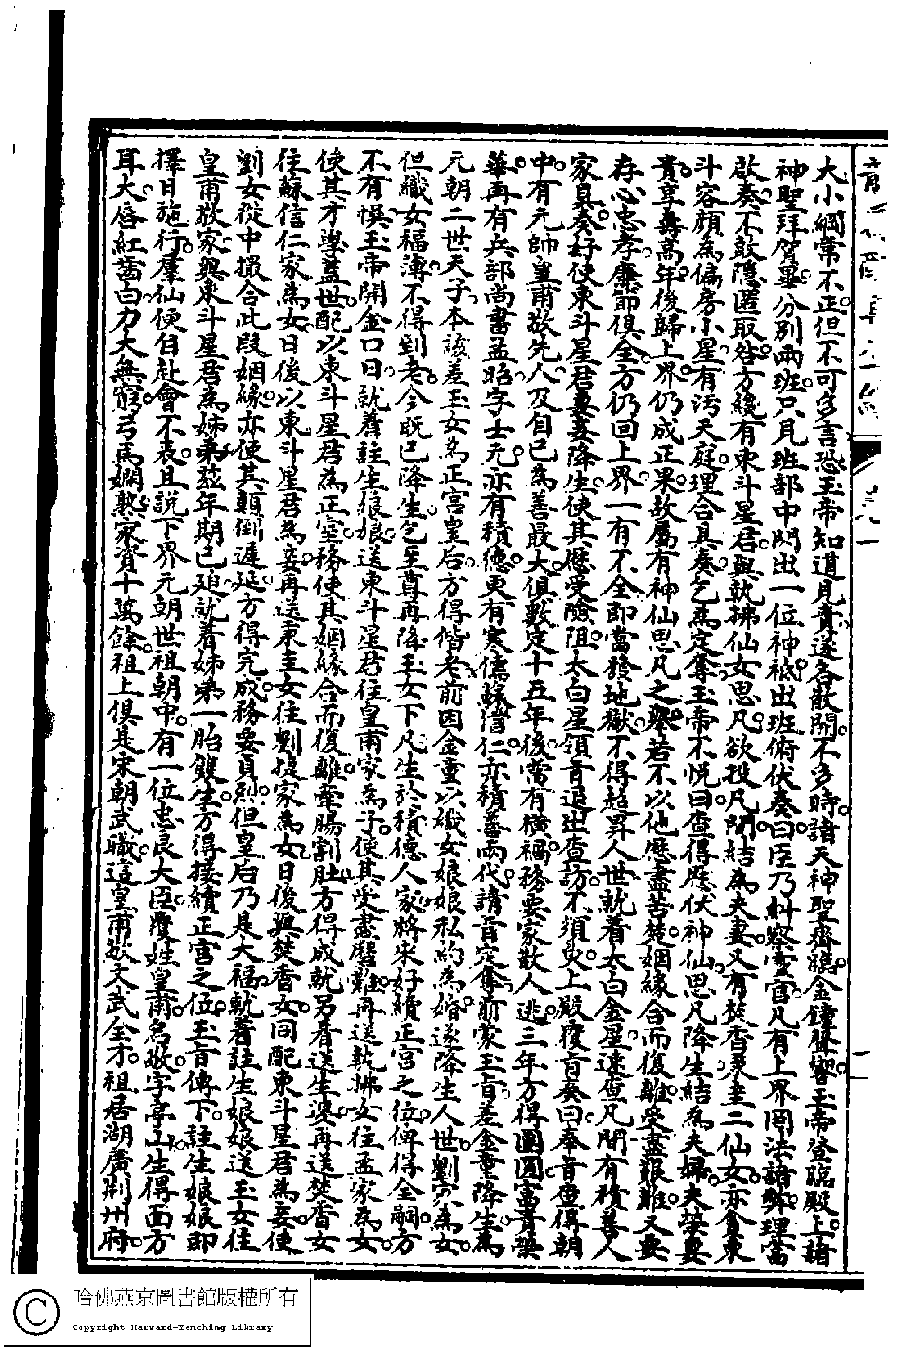 大小綱常不正但不可多言恐玉帝知道見責遂各散開不多時諸天神聖齊臨金鐘聲響玉帝登臨殿上諸
神聖拜賀畢分別兩班只見班部中閃出一位神祗出班俯伏奏曰臣乃糾察靈官凡有上界罔法諸弊理當
啟奏不敢隱匿取咎方纔有東斗星君與執拂仙女思凡欲投凡間結為夫妻又有焚香秉圭二仙女亦貪東
斗容顏為偏房小星有污天庭理合具奏乞為定奪玉帝不悅曰查得歷伏神仙思凡降生結為夫婦夫榮妻
貴享壽高年後歸上界仍成正果致屬有神仙思凡之舉若不以他歷盡苦楚姻緣合而復離受盡艱難又要
存心忠孝廉節俱全方仍回上界一有不全即當發地獄不得超昇人世就着太白金星速查凡間有積善人
家具奏好使東斗星君妻妾降生使其歷受險阻太白星領旨退出查訪不須臾上殿覆旨奏曰奉旨查得朝
中有元帥皇甫敬先人及自己為善最大俱數定十五年後當有橫禍務要家散人逃三年方得團圓富貴榮
華再有兵部尚書孟昭字士元亦有積德更有寒儒蘇信仁亦積善兩代請旨定奪前蒙玉旨差金童降生為
元朝二世天子本該差玉女為正宮皇后方得偕老前因金童以織女娘娘私約為婚遂降生人世劉家為女
但織女福薄不得到老今既已降生乞至尊再降玉女下凡生於積德人家將來好續正宮之位俾得全嗣方
不有悞玉帝開金口曰就着註生娘娘送東斗星君往皇甫家為子使其受盡磨難再送執拂女往孟家為女
使其才學蓋世配以東斗星君為正室務使其姻緣合而復離牽腸割肚方得成就另着送生婆再送焚香女
往蘇信仁家為女日後以東斗星君為妾再送秉圭女往劉捷家為女日後與焚香女同配東斗星君為妾使
劉女從中撮合此段姻緣亦使其顛倒遲延方得完成務要貞烈但皇后乃是大福就着註生娘娘送玉女往
皇甫敬家與東斗星君為姊弟茲年期已迫就着姊弟一胎雙生方得接續正宮之位玉旨傳下註生娘娘即
擇日施行羣仙便自赴會不表且說下界元朝世祖朝中有一位忠良大臣覆姓皇甫名敬字亭山生得面方
耳大唇紅齒白力大無窮弓馬嫻熟家資十萬餘祖上俱是宋朝武職這皇甫敬文武全才祖居湖廣荊州府
哈佛燕京圖書館版權所有
Copyright Harvard-Yenching Library